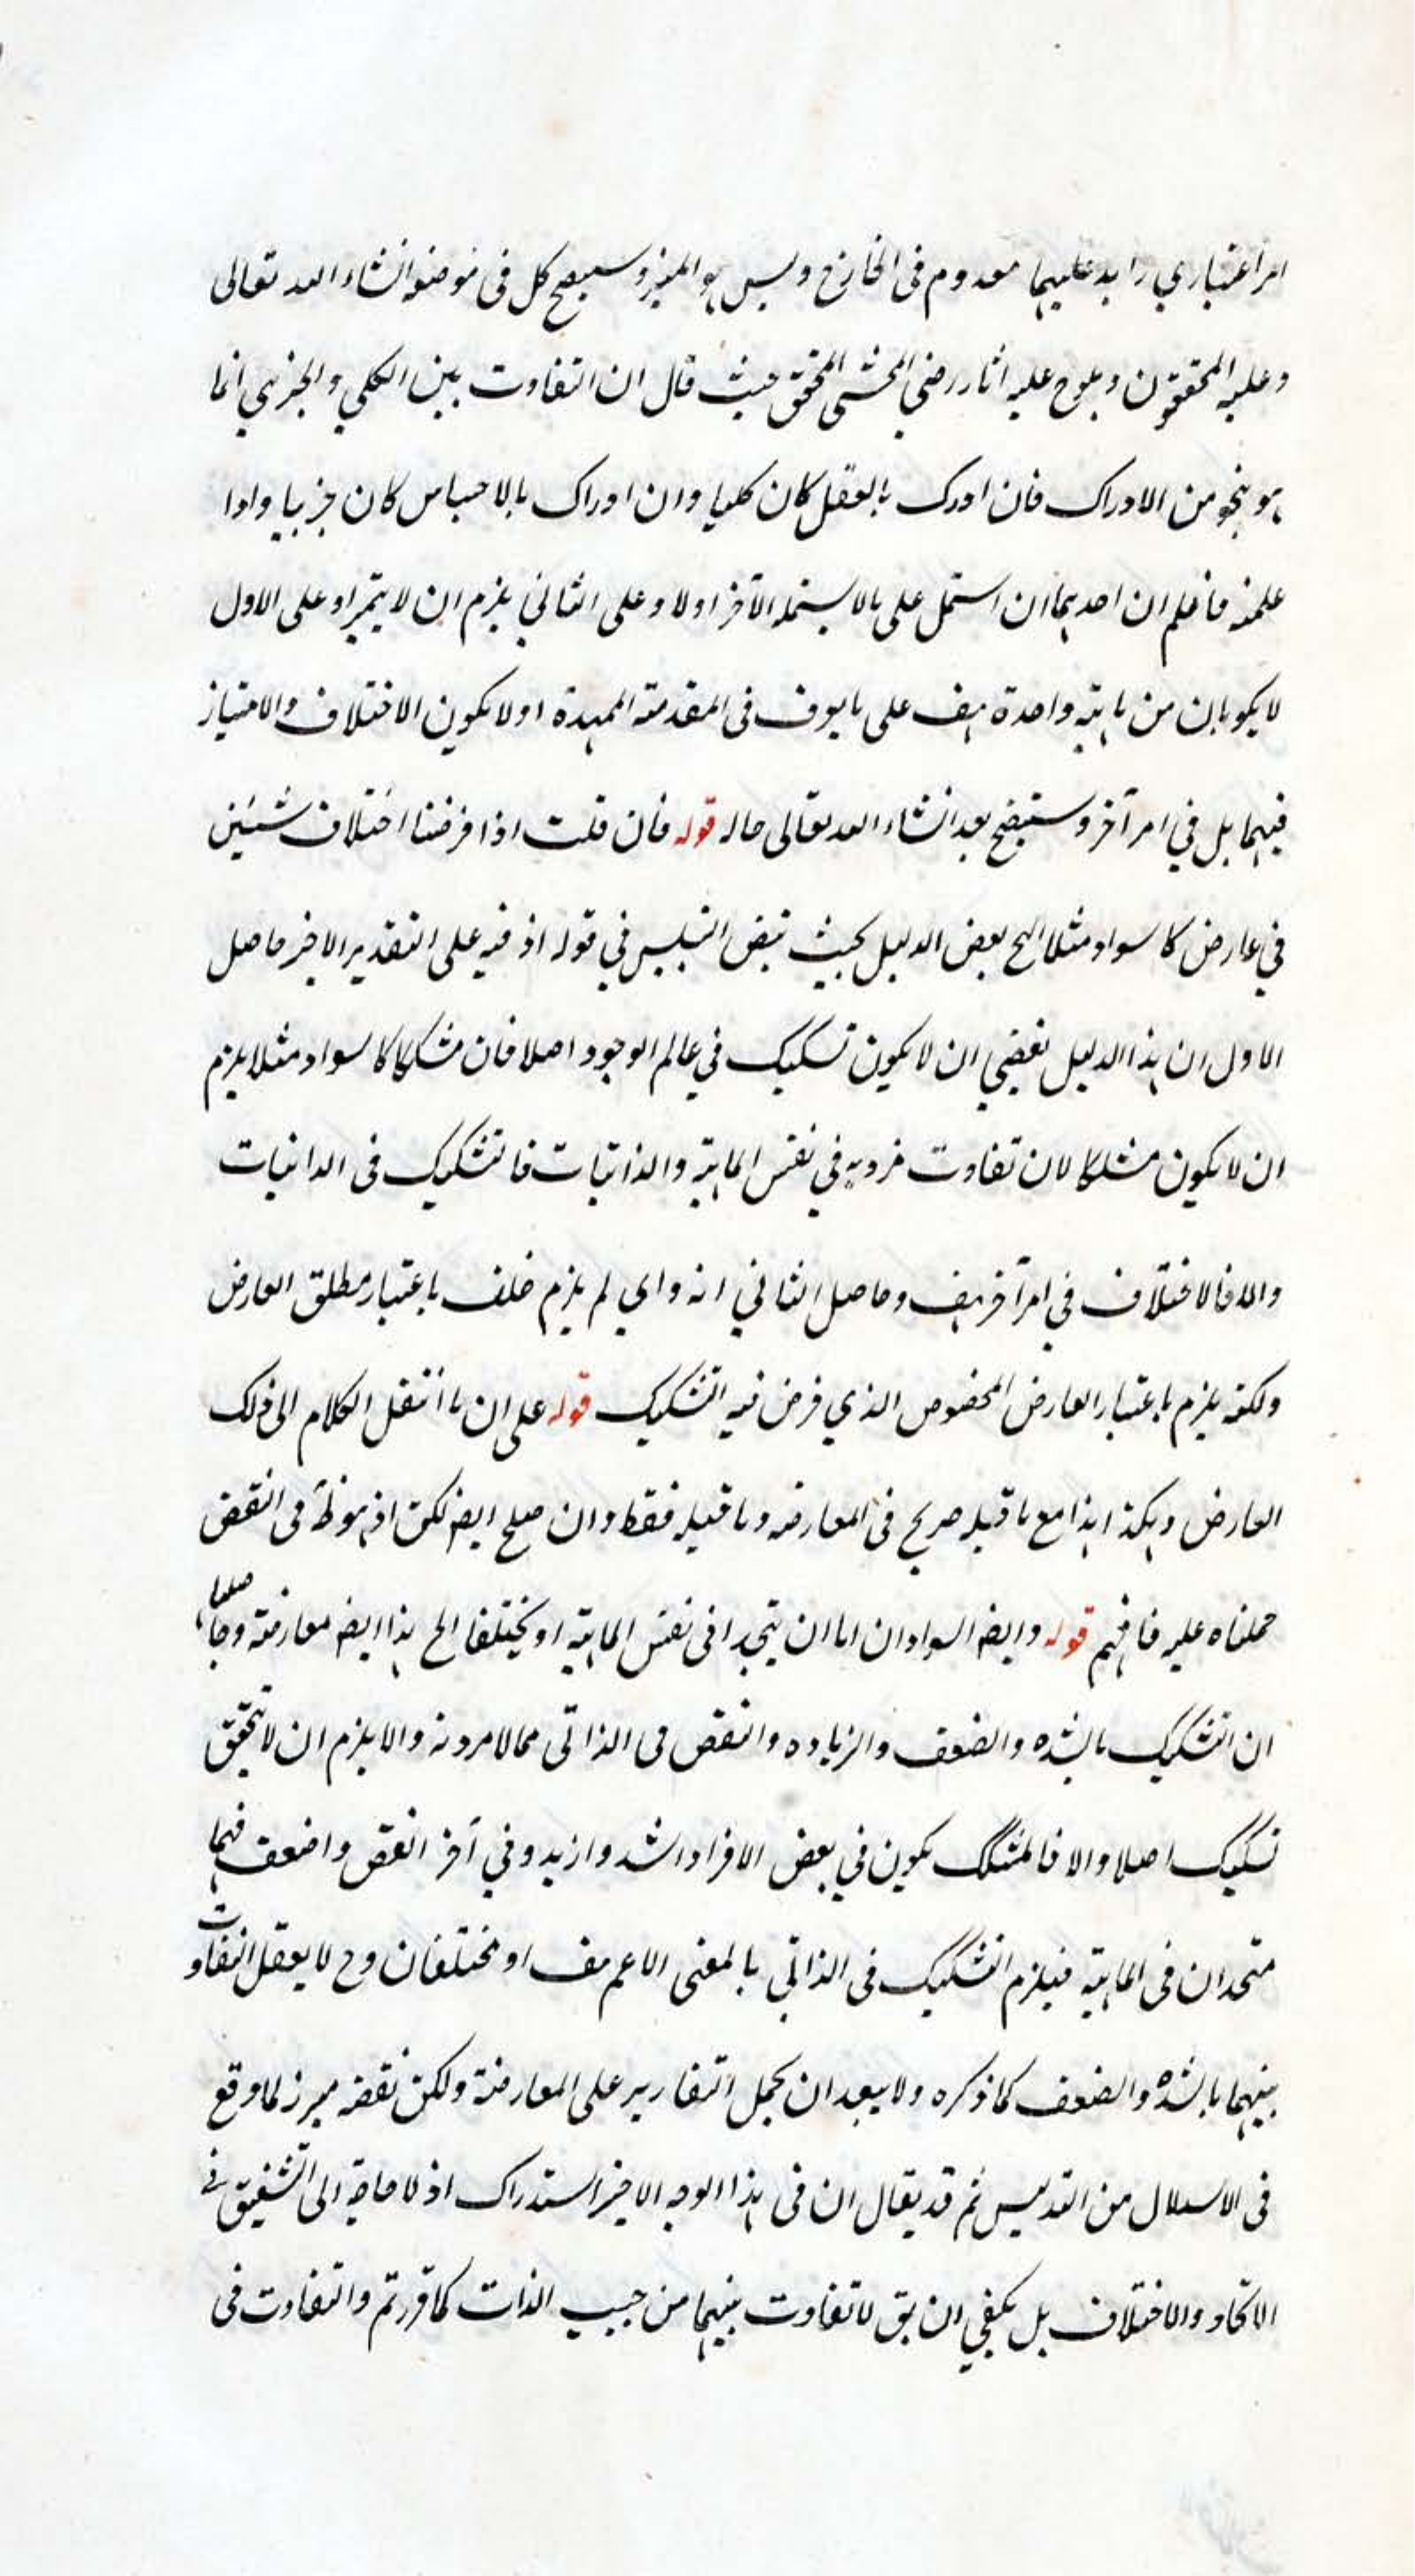 امر اعتباري زايد عليهما معدوم في الخارج وليس هو المميز وسيصح كل في موضعه انشاء الله تعالى
وعليه المحققون ويلوح عليه اثار رضي المحشي المحقق حيث قال ان التفاوت بين الكلي والجزيي انما
هو بنحو من الادراك فان ادرك بالعقل كان كليا وان ادراك بالاحساس كان جزييا واذا
علمته فاعلم ان احديهما ان اشتمل على ما لا يشتمله الآخر اولا وعلى الثاني يلزم ان لا يتميزا وعلى الاول
لا يكونان من ماهية واحدة هف على ما يعرف في المقدمة الممهدة اولا يكون الاختلاف والامتياز
فيهما بل في امر آخر وستيضح بعد انشاء الله تعالى حاله قوله فان قلت اذا فرضنا اختلاف شيئين
في عارض كالسواد مثلا الخ بعض الدليل بحيث في قوله اذ فيه على التقدير الاخير حاصل
الاول ان هذا الدليل يقتضي ان لا يكون تشكيك في عالم الوجود اصلا فان مشككا كالسواد مثلا يلزم
ان لا يكون مشككا لان تفاوت فرديه في نفس الماهية والذاتيات فالتشكيك في الذاتيات
والا فالاختلاف في امر آخر هف وحاصل الثاني انه وان لم يلزم خلف باعتبار مطلق العارض
ولكنه يلزم باعتبار العارض المخصوص الذي فرض فيه التشكيك قوله على ان ما انتقل الكلام الى ذلك
العارض وهكذا هذا مع ما قبله صريح في المعارضه وما قبله فقط وان صلح ايضا لكن اذ هو في النقض
حملناه عليه فافهم قوله وايضا السوادان اما ان يتحدا في نفس الماهية او يختلفا الخ هذا ايضا معارضة وحاصلها
ان التشكيك بالشده والضعف والزياده والنقص في الذاتي مما لا مرد له والا يلزم ان لا يتحقق
تشكيك اصلا والا فالمشكك يكون في بعض الافراد اشد وازيد وفي آخر انقص واضعف فهما
متحدان في الماهية فيلزم التشكيك في الذاتي بالمعنى الاعم هف او مختلفان وح لا يعقل التفاوت
بينهما بالشده والضعف كما ذكره ولا يبعد ان يحمل التقارير على المعارضة ولكن نقضه ميرز لما وقع
في الاستدلال من التدليس ثم قد يقال ان في هذا الوجه الاخير استدراك اذ لا حاجة الى التشقيق في
الاتحاد والاختلاف بل يكفي ان يق لا تفاوت بينهما من حيث الذات كما قررتم والتفاوت في